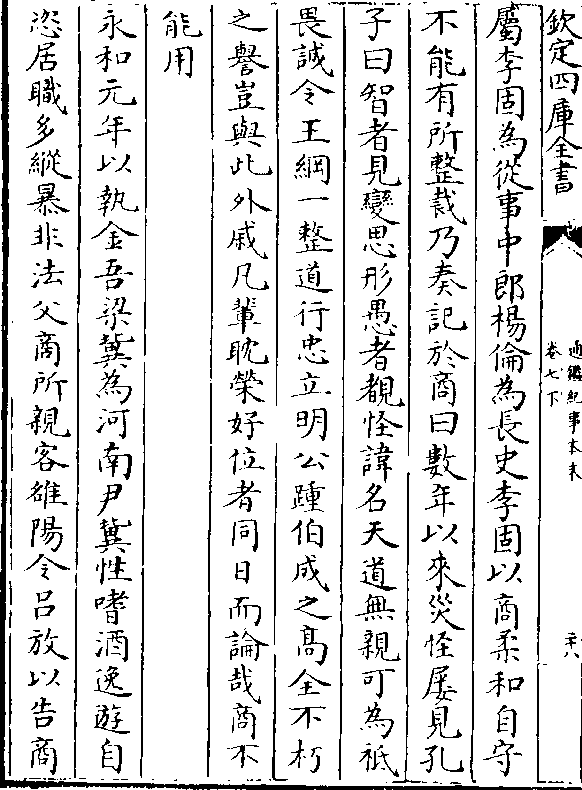 欽定四庫全書
通鑑紀事本末
卷七下
屬李固為從事中郎楊倫為長史李固以商柔和自守
不能有所整裁乃奏記於商曰數年以來災怪屢見孔
子曰智者見變思形愚者覩怪諱名天道無親可為祗
畏誠令王綱一整道行忠立明公踵伯成之高全不朽
之譽豈與此外戚凡輩耽榮好位者同日而論哉商不
能用
永和元年以執金吾梁冀為河南尹冀性嗜酒逸遊自
恣居職多縱暴非法父商所親客雒陽令吕放以告商